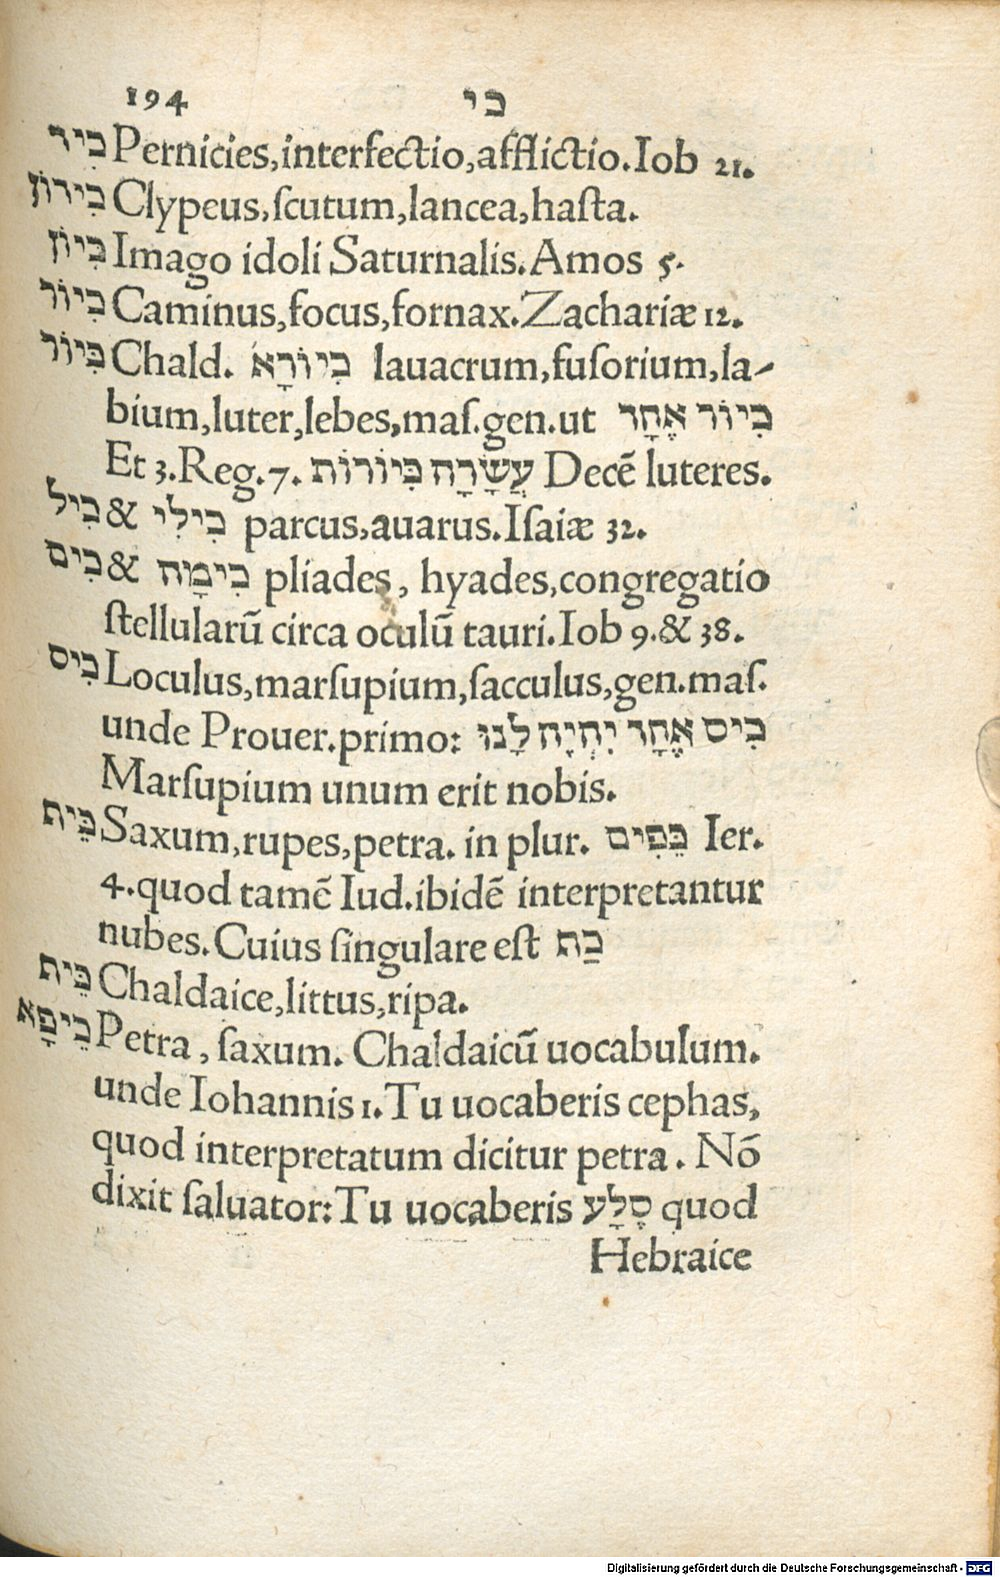 194 כי
כִיד Pernicies,interfectio,afflictio.Iob 21.
כִידוֹן Clypeus,ſcutum,lancea,haſta.
כִיוּן Imago idoli Saturnalis.Amos 5.
כִיוֹר Caminus,focus,fornax.Zachariæ 12.
כִיוֹר Chald. כִיוֹרָא lauacrum,fuſorium,la-
bium,luter,lebes,maſ.gen.ut כִיוֹר אֶחָד
Et 3.Reg.7. עֲשָׂרָה כִיוֹרוֹת Decē luteres.
כִיל & כִילִי parcus,auarus.Iſaiæ 32.
כִים & כִימָה pliades, hyades,congregatio
ſtellularū circa oculū tauri.Iob 9.& 38.
כִיס Loculus,marſupium,ſacculus,gen.maſ.
unde Prouer.primo: כִיס אֶחָד יִהְיֶה לָנוּ
Marſupium unum erit nobis.
כֵּיף Saxum,rupes,petra. in plur. כֵּפִים Ier.
4.quod tamē Iud.ibidē interpretantur
nubes.Cuius ſingulare eſt כַּף
כֵּיף Chaldaice,littus,ripa.
כֵיפָא Petra, ſaxum. Chaldaicū uocabulum.
unde Iohannis 1.Tu uocaberis cephas,
quod interpretatum dicitur petra. Nō
dixit ſaluator:Tu uocaberis סֶלַע quod
Hebraice
Digitalisierung gefördert durch die Deutsche Forschungsgemeinschaft - DFG